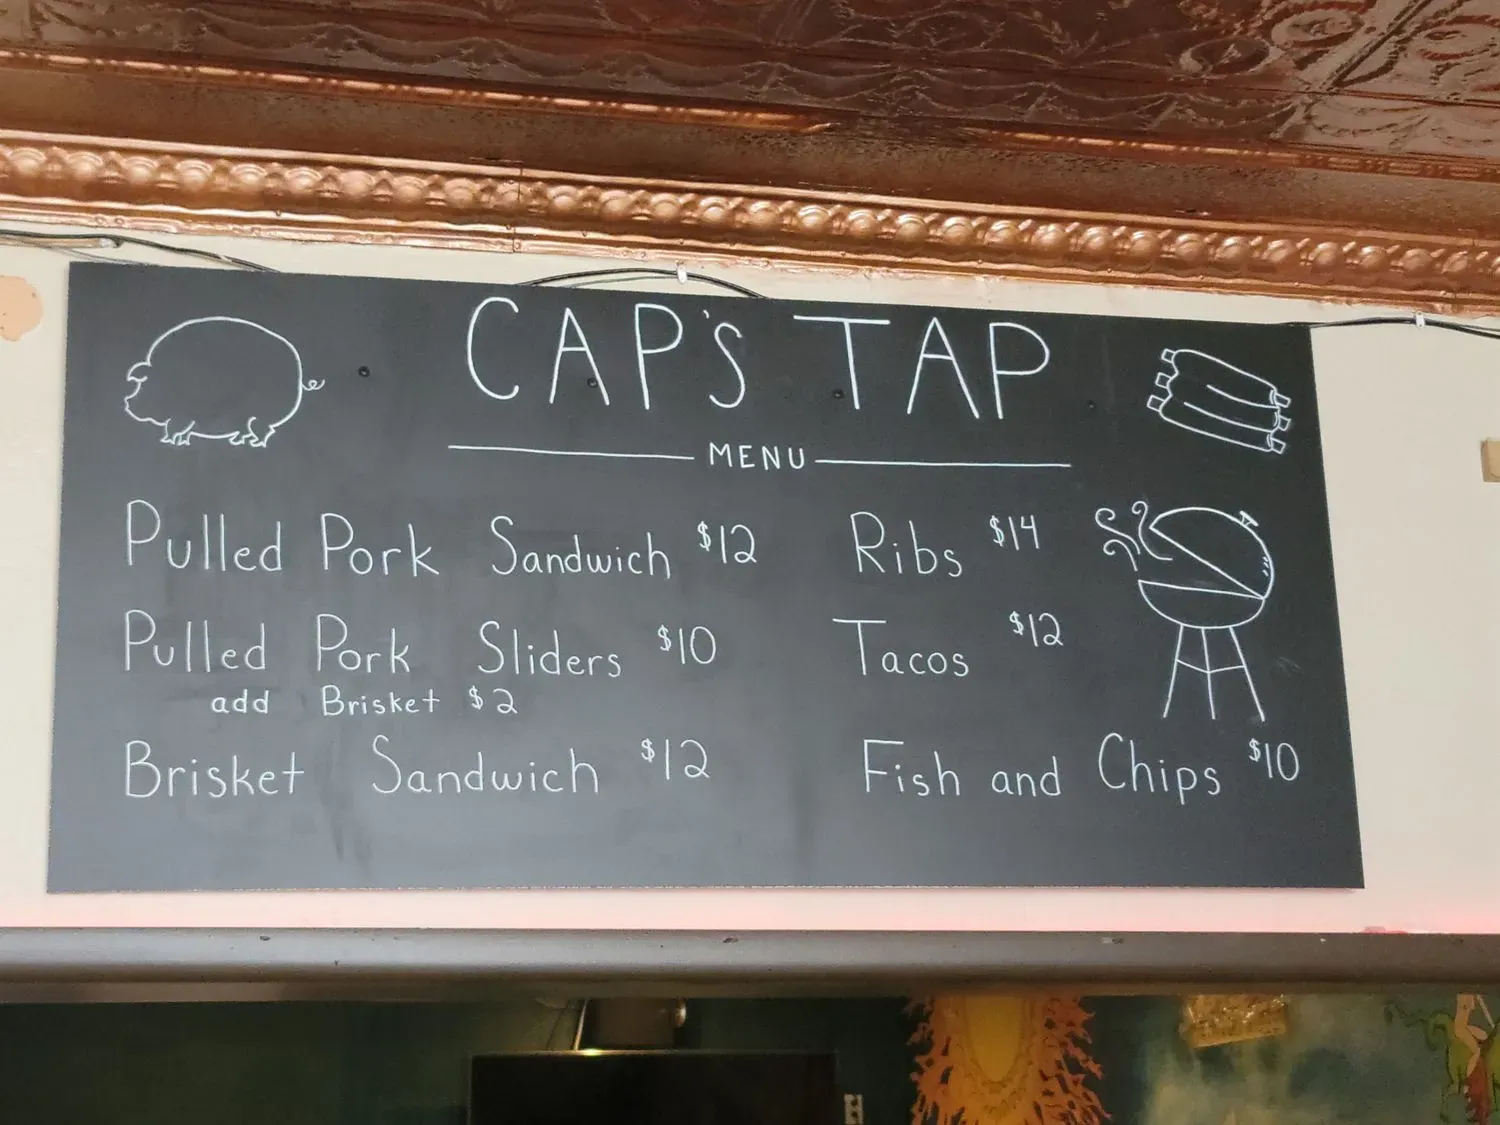 CAP'S TAP
MENU
Pulled Pork Sandwich $12
Pulled Pork Sliders $10
add Brisket $2
Brisket Sandwich $12
Ribs $14
Tacos $12
Fish and Chips $10